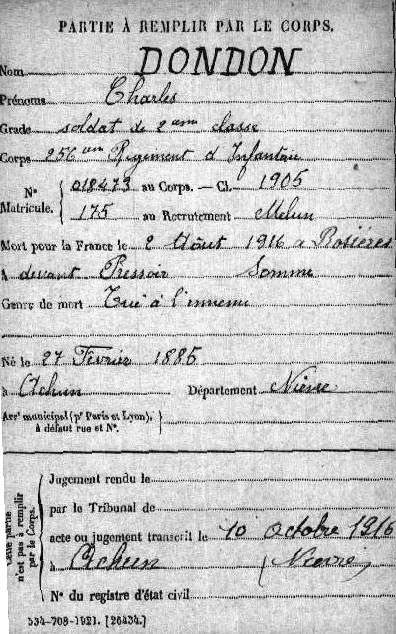 PARTIE À REMPLIR PAR LE CORPS.
Nom DONDON
Prénoms Charles
Grade soldat de 2ème classe
Corps 256ème Régiment d'Infanterie
N° Matricule. { 018473 au Corps. — Cl. 1905
175 au Recrutement Melun
Mort pour la France le 2 Août 1916 à Rosières
à devant Pressoir Somme
Genre de mort Tué à l'ennemi
Né le 27 Février 1885
à Achun Département Nièvre
Arrt municipal (pr Paris et Lyon), à défaut rue et N°. }
Cette partie n'est pas à remplir par le Corps.
Jugement rendu le
par le Tribunal de
acte ou jugement transcrit le 10 octobre 1916
à Achun (Nièvre)
N° du registre d'état civil
534-708-1921. [26434.]